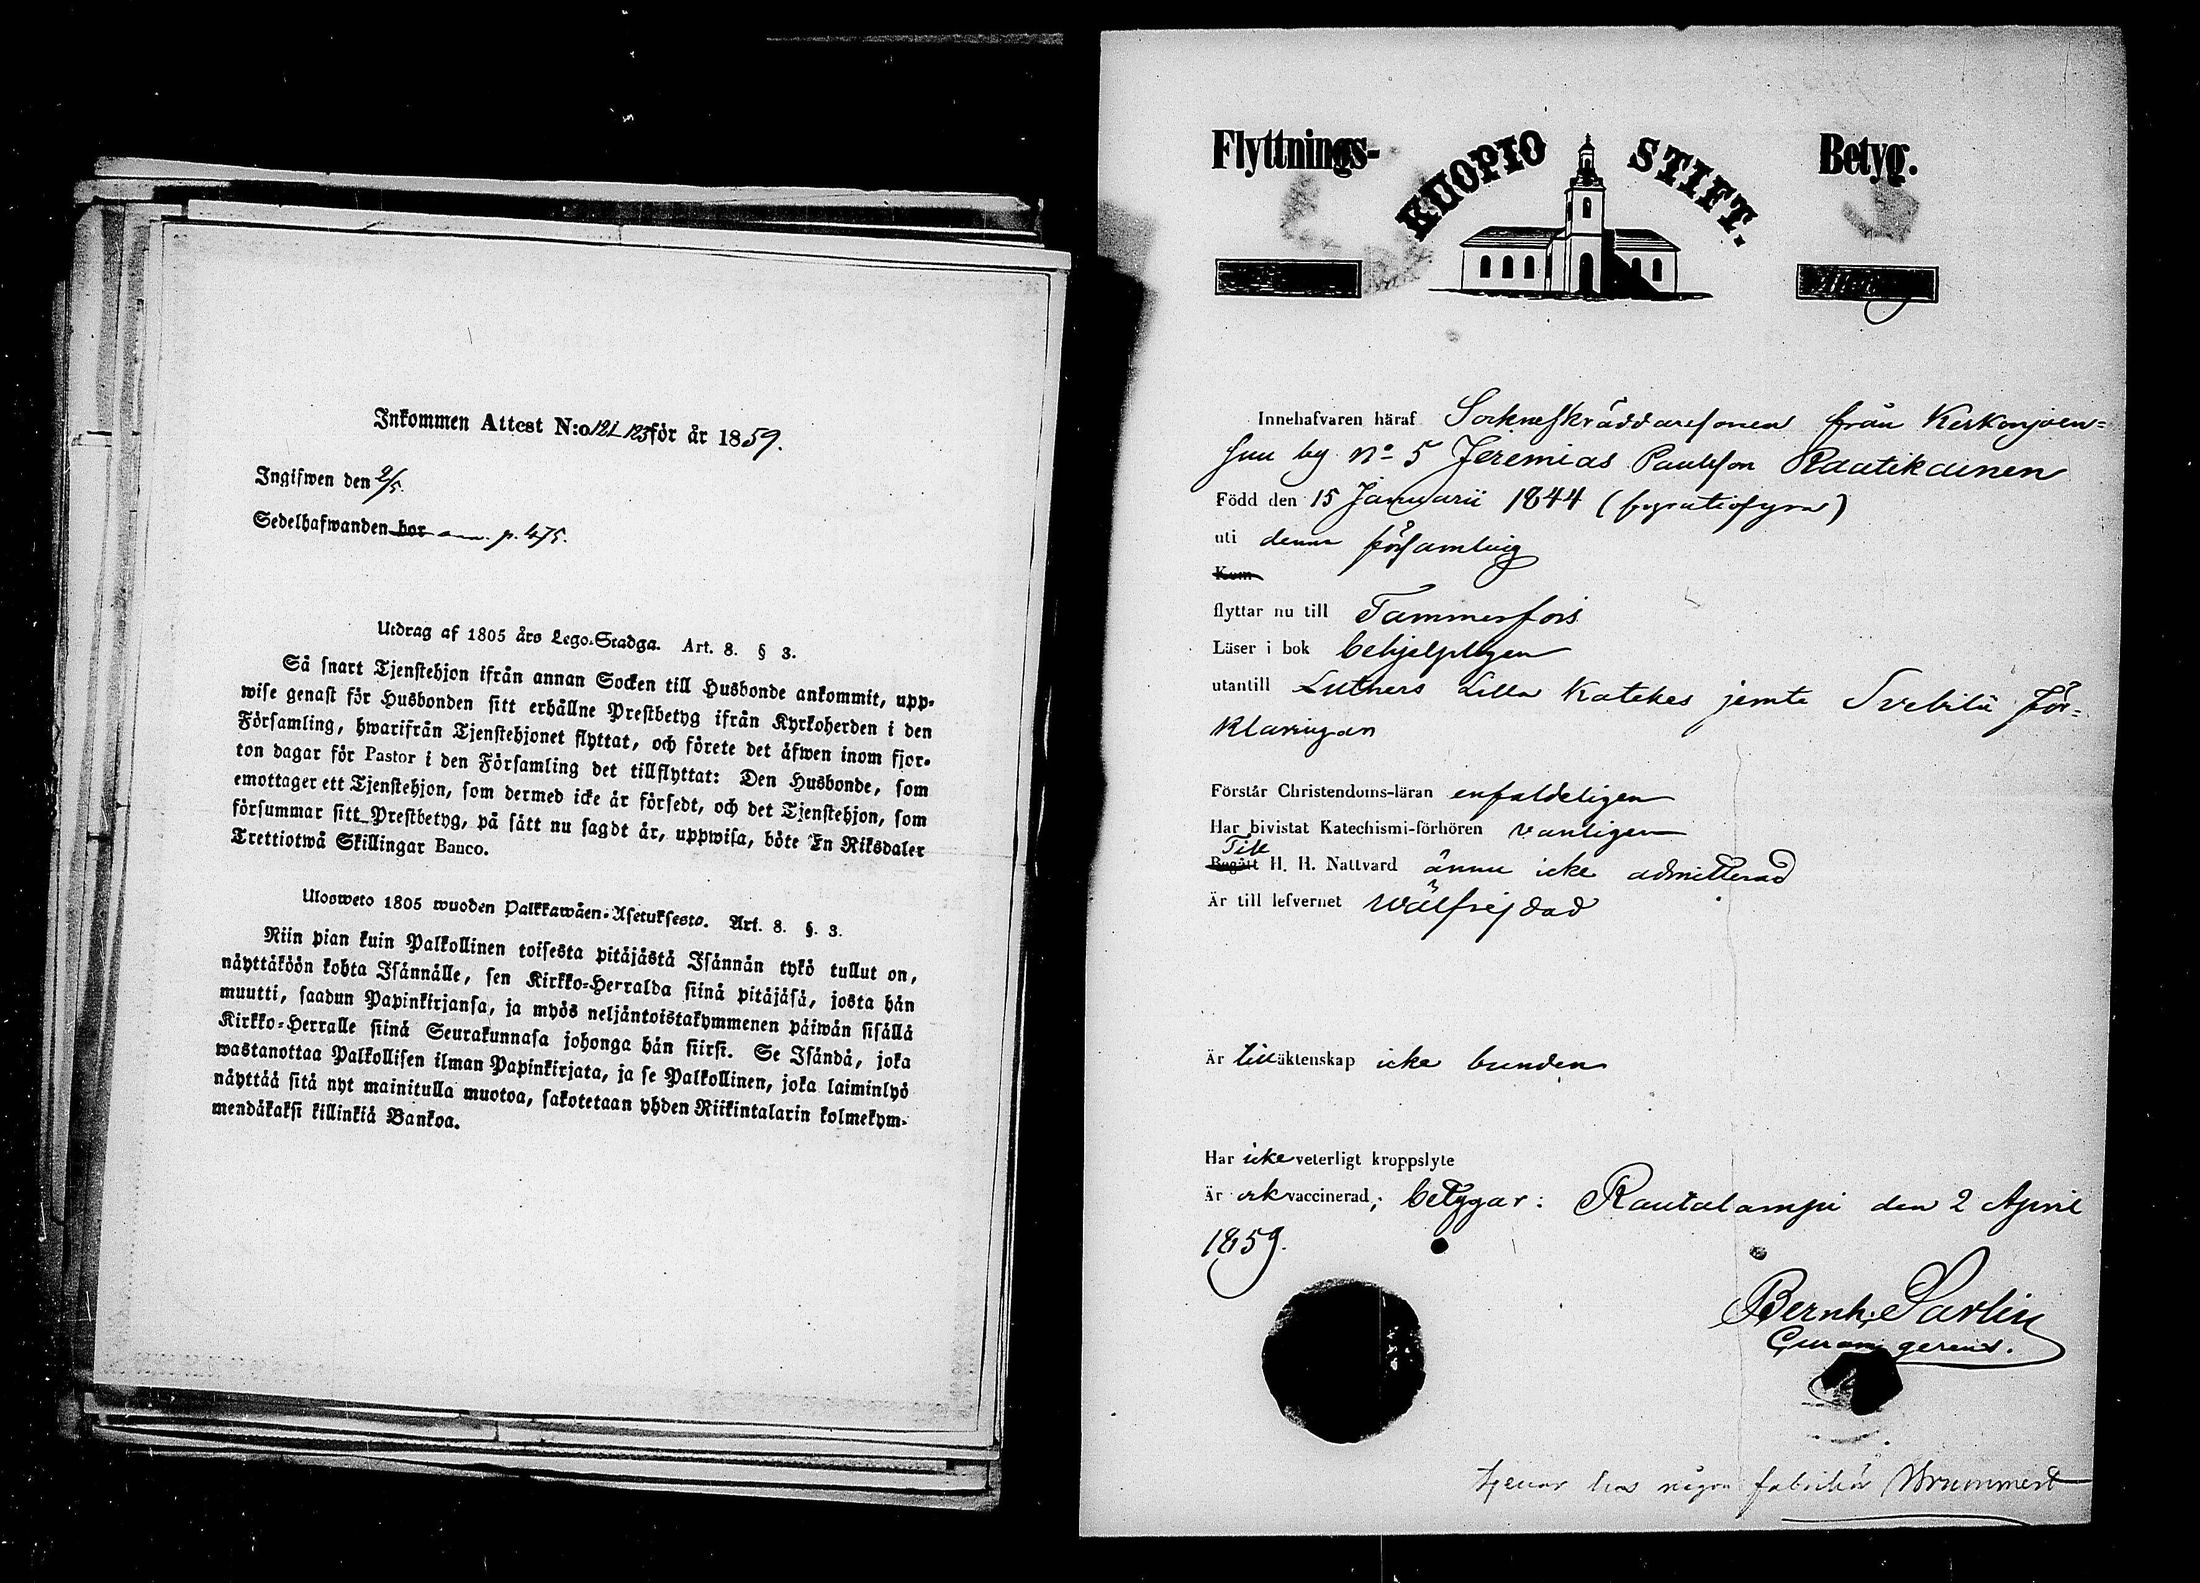 Inkommen Attest N:o 121-123 för år 1859.
Ingifwen den 2/5.
Sedelhafwanden bor p. 475.
Utdrag af 1805 års Lego-Stadga. Art. 8. § 3.
Så snart Tjenstehjon ifrån annan Socken till Husbonde ankommit, upp-
wise genast för Husbonden sitt erhållne Prestbetyg ifrån Kyrkoherden i den
Församling, hwarifrån Tjenstehjonet flyttat, och förete det äfwen inom fjor-
ton dagar för Pastor i den Församling det tillflyttat: Den Husbonde, som
emottager ett Tjenstehjon, som dermed icke är försedt, och det Tjenstehjon, som
försummar sitt Prestbetyg, på sätt nu sagdt är, uppwisa, böte En Riksdaler
Trettiotwå Skillingar Banco.
Ulosweto 1805 wuoden Palkkawäen-Asetuksesta. Art. 8. §. 3.
Niin pian kuin Palkollinen toisesta pitäjästä Isännän tykö tullut on,
näyttäköön kohta Isännälle, sen Kirkko-Herralda siinä pitäjäsä, josta hän
muutti, saadun Papinkirjansa, ja myös neljäntoistakymmenen päiwän sisällä
Kirkko-Herralle siinä Seurakunnasa johonga hän siirsi. Se Isändä, joka
wastanottaa Palkollisen ilman Papinkirjata, ja se Palkollinen, joka laiminlyö
näyttää sitä nyt mainitulla muotoa, sakotetaan yhden Riikintalarin kolmekym-
mendäkaksi killinkiä Bankoa.
Flyttnings- KUOPIO STIFT. Betyg.
Innehafvaren häraf Sockneskräddaresonen från Kerkonjoen=
suu by No 5 Jeremias Paulsson Raatikainen
Född den 15 Januarii 1844 (fyratiofyra)
uti denna församling
Kom
flyttar nu till Tammerfors
Läser i bok behjelpligen
utantill Luthers Lilla Katekes jemte Svebilii För=
klaringan
Förstår Christendoms-läran enfaldeligen
Har bivistat Katechismi-förhören vanligen
Till
Begått H. H. Nattvard ännu icke admitterad
Är till lefvernet wälfrejdad
Är till äktenskap icke bunden
Har icke veterligt kroppslyte
Är ock vaccinerad; betygar: Rautalampi den 2 April
1859.
Bernh. Sarlin
Curam gerens.
tjenar hos några fabrikör